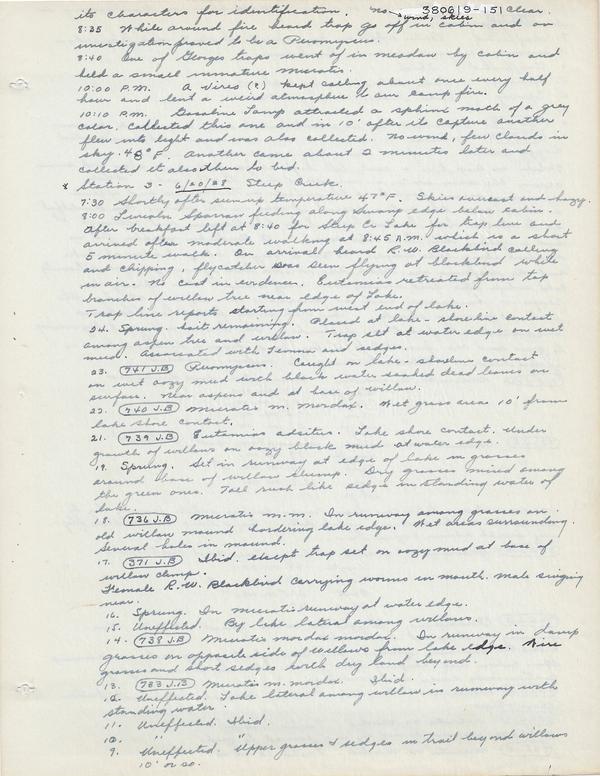 its characters for identification. No wind, skies clear.
380619-151
8:35 While around fire heard trap go off in cabin and on
investigation proved to be a Peromyscus.
8:40 One of Georges traps went of in meadow by cabin and
held a small immature Microtis.
10:00 P.M. A Vires (?) kept calling about once every half
hour and lent a weird atmosphere to our camp fire.
10:10 P.M. Gasoline lamp attracted a sphinx moth of a grey
color. Collected this one and in 10' after its capture another
flew into light and was also collected. No wind, few clouds in
sky. 48° F. Another came about 2 minutes later and
collected it also then to bed.
Station 3 - 6/20/38 Steep Creek.
7:30 Shortly after sun-up temperature 47° F. Skies overcast and hazy.
8:00 Lincoln Sparrow feeding along swamp edge below cabin.
After breakfast left at 8:40 for Steep Cr Lake for trap line and
arrived after moderate walking at 8:45 A.M. which is a short
5 minute walk. On arrival heard R.W. Blackbird calling
and chipping, flycatcher was seen flying at blackbird while
in air. No coot in evidence. Eutamias retreated from top
branches of willow tree near edge of Lake.
Trap line reports starting from west end of lake.
24. Sprung - bait remaining. Placed at lake - shoreline contact
among aspen tree and willow. Trap set at water edge on wet
mud. Associated with Lemna and sedges.
23. (741 J.B) Peromyscus. Caught on lake - shoreline contact
on wet oozy mud with black water soaked dead leaves on
surface. Near aspens and at base of willow.
22. (740 J.B) Microtis m. mordax. Wet grass area 10' from
lake shore contact.
21. (739 J.B) Eutamias adsitus. Lake shore contact. Under
growth of willows on oozy black mud at water edge.
19. Sprung. Set in runway at edge of lake in grasses
around base of willow stump. Dry grasses mixed among
the green ones. Tall rush like sedge in standing water of
lake.
18. (736 J.B) Microtis m.m. In runway among grasses on
old willow mound bordering lake edge. Wet areas surrounding.
Several holes in mound.
17. (371 J.B) Ibid. except trap set on oozy mud at base of
willow clump.
Female R.W. Blackbird carrying worms in mouth. Male singing
near.
16. Sprung. In microtis runway at water edge.
15. Uneffected. By lake lateral among willows.
14. (738 J.B) Microtis mordax mordax. In runway in damp
grasses on opposite side of willows from lake edge. Wire
grasses and short sedges north dry land beyond.
13. (783 J.B) Microtis m. mordax. Ibid.
12. Uneffected. Lake lateral among willow in runway with
standing water.
11. Uneffected. Ibid.
10. " "
9. Uneffected. Upper grasses & sedges in trail beyond willows
10' or so.